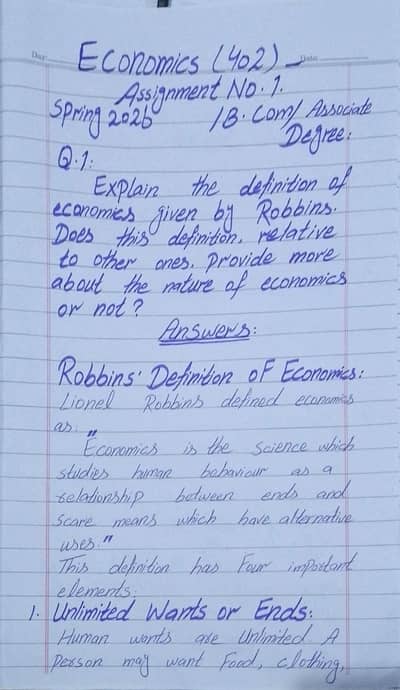 Day:
Date:
Economics (402) -
Assignment No. 1.
Spring 2026 / B. Com/ Associate
Degree.
Q.1:
Explain the definition of
economics given by Robbins.
Does this definition, relative
to other ones, provide more
about the nature of economics
or not?
Answers:
Robbins' Definition of Economics:
Lionel Robbins defined economics
as: "
Economics is the science which
studies human bahaviour as a
relationship between ends and
Scare means which have alternative
uses."
This definition has Four important
elements.
1. Unlimited Wants or Ends:
Human wants are Unlimited. A
Person may want Food, clothing,